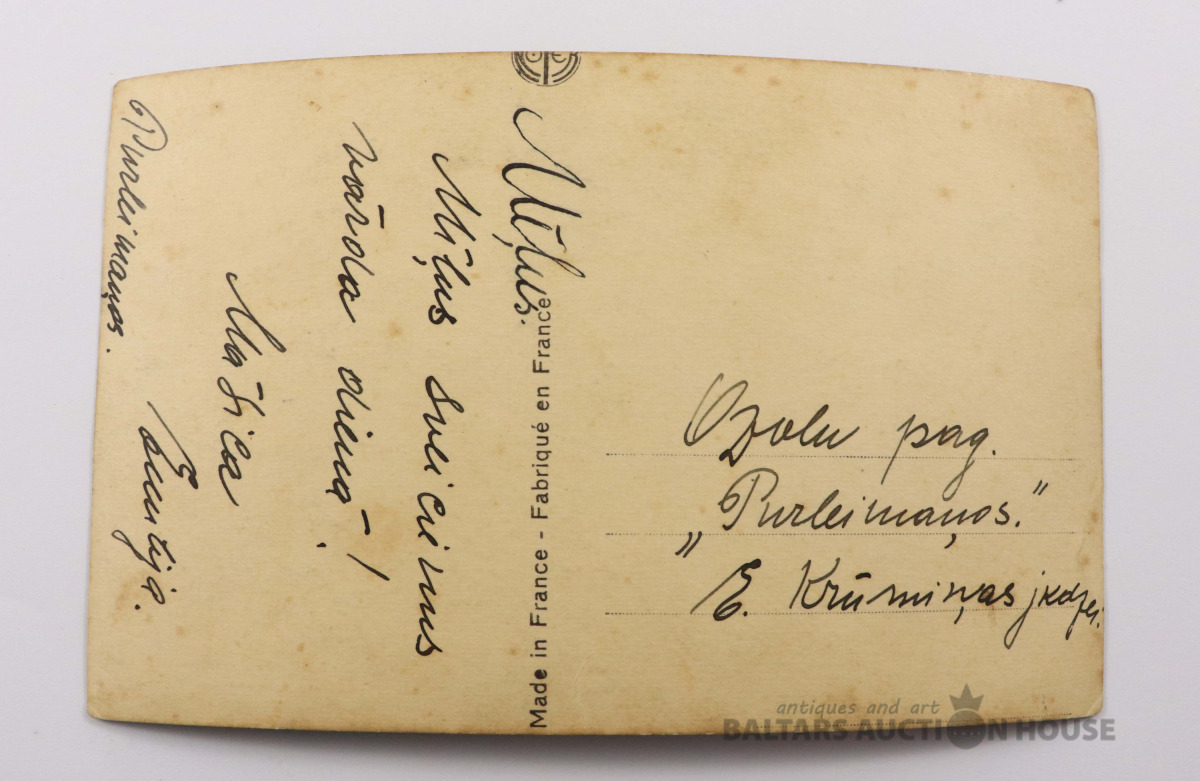 Mīļus.
Mīļus sveicienus
vārda dienā!
Māsica
Emilija.
Purleimaņos.
Made in France - Fabriqué en France
Ozolu pag.
„Purleimaņos."
E. Krūmiņas jkdzei.
antiques and art
BALTARS AUCTION HOUSE